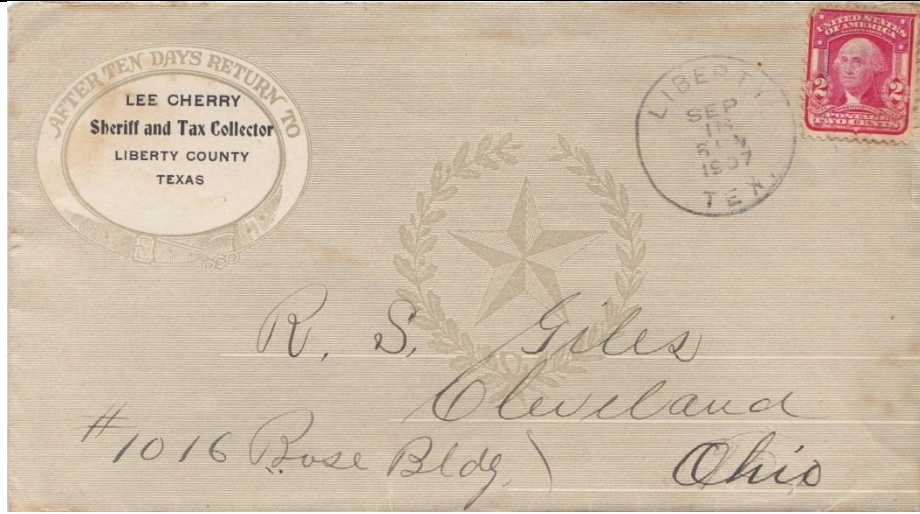 AFTER TEN DAYS RETURN TO
LEE CHERRY
Sheriff and Tax Collector
LIBERTY COUNTY
TEXAS
LIBERTY
SEP
1907
TEX.
UNITED STATES
OF AMERICA
2 2
POSTAGE
TWO CENTS
R. S. Giles
Cleveland
#1016 Rose Bldg.)
Ohio